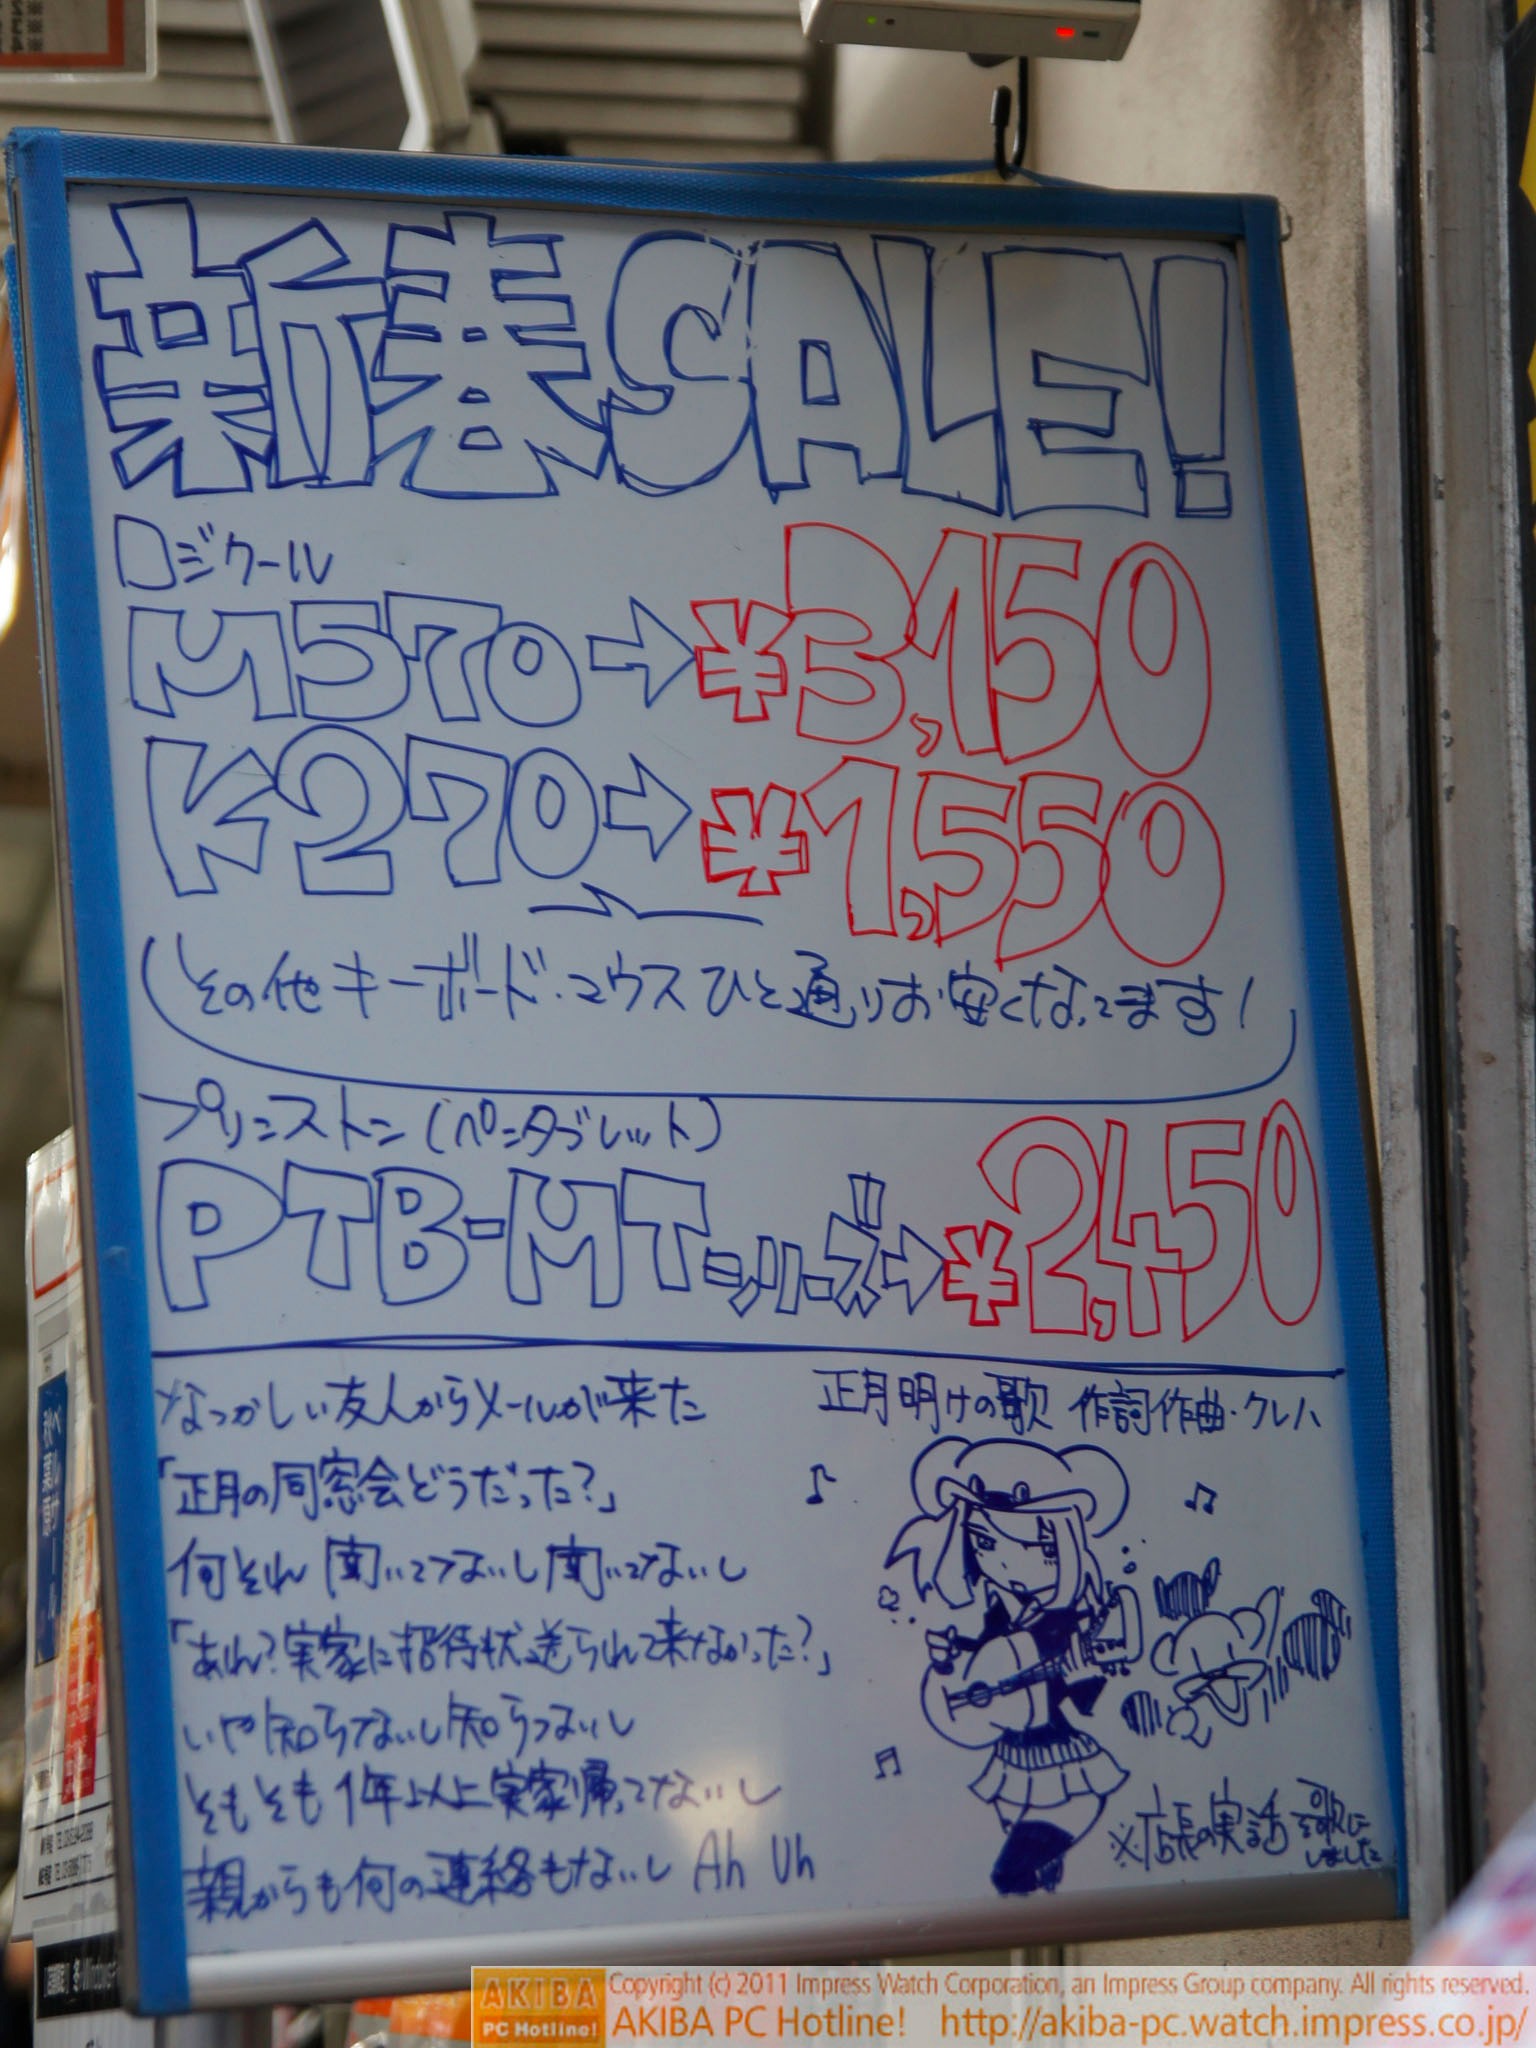 新春SALE!
ロジクール
M570→¥3,150
K270→¥1,550
その他キーボード・マウスひと通りお安くなってます!
プリンストン(ペンタブレット)
PTB-MTシリーズ→¥2,450
なつかしい友人からメールが来た
「正月の同窓会どうだった?」
何それ聞いてないし聞いてないし
「あれ?実家に招待状送られて来なかった?」
いや知らないし知らないし
そもそも1年以上実家帰ってないし
親からも何の連絡もないし Ah Uh
正月明けの歌 作詞作曲・クレハ
※店長の実話 歌にしました
AKIBA
PC Hotline!
Copyright (c) 2011 Impress Watch Corporation, an Impress Group company. All rights reserved.
AKIBA PC Hotline! http://akiba-pc.watch.impress.co.jp/